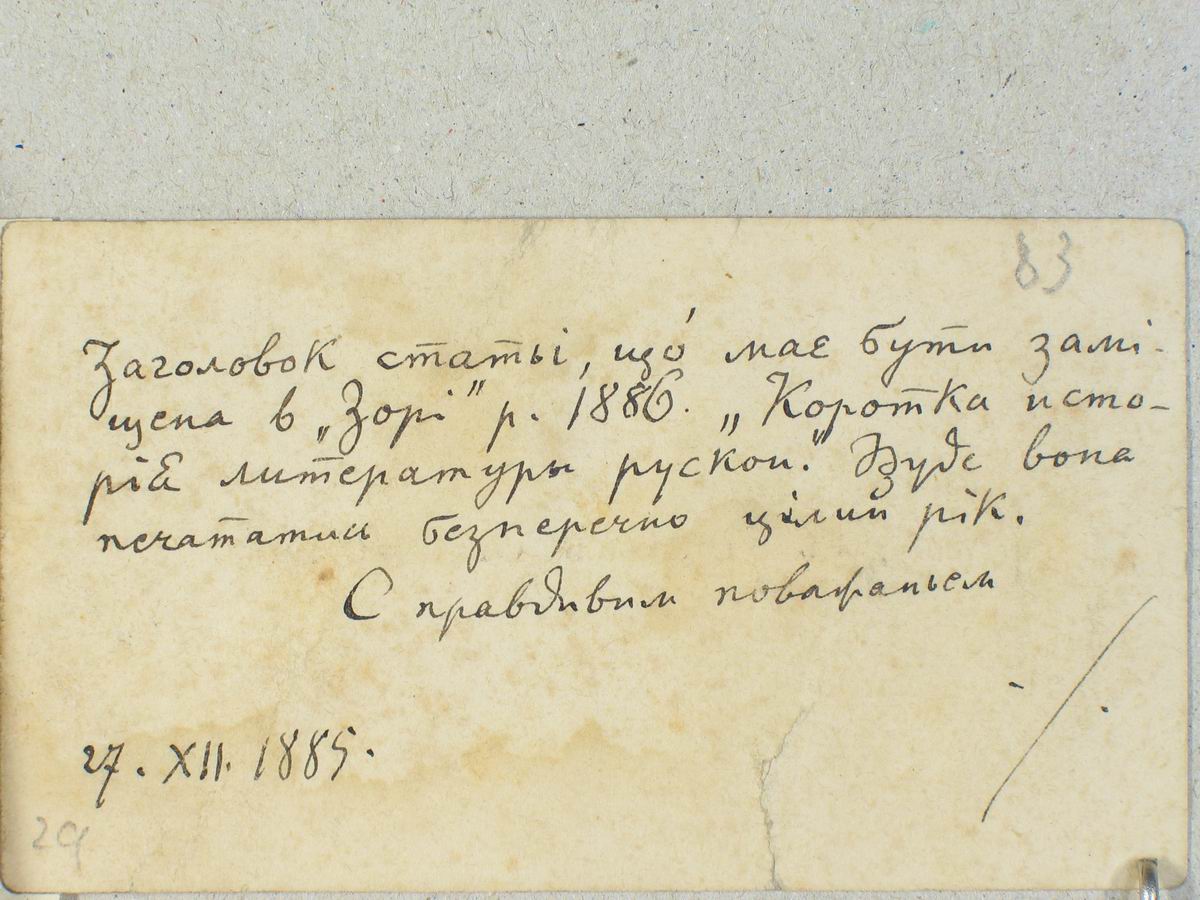 83
Заголовок статьі, що́ має бути замі-
щена в „Зорі" р. 1886. „Коротка исто-
ріѣ литературы рускои." Буде вона
печататись безперечно цілий рік.
С правдивим поважаньем
27. XII. 1885.
29